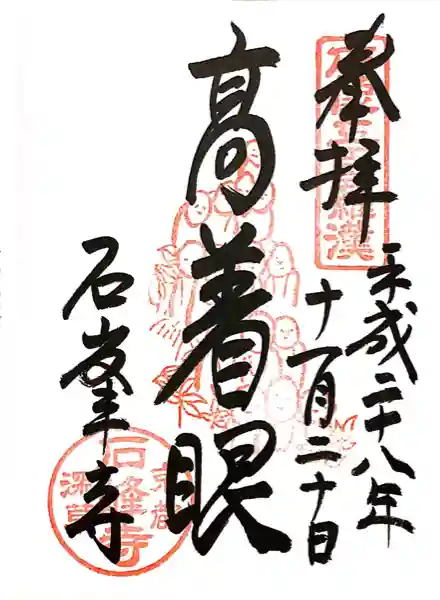 奉拝
平成二十八年
十一月二十日
高着眼
石峯寺
羅漢
京都
石峰寺
深草